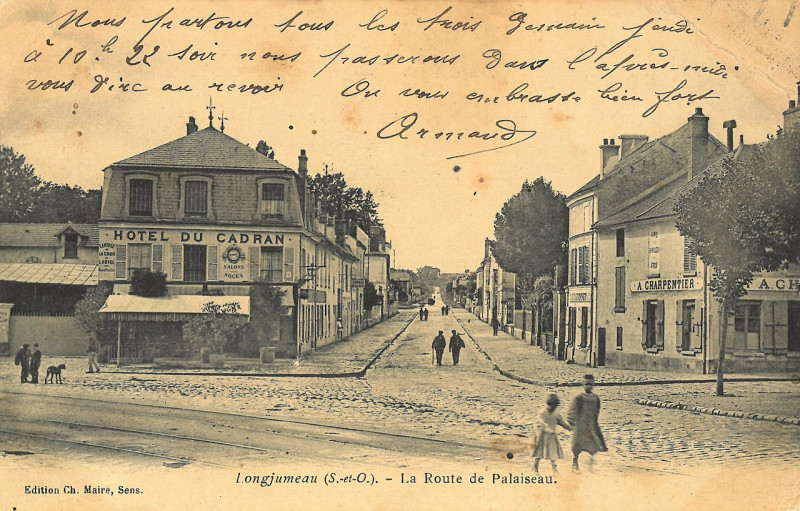 Nous partons tous les trois Germain jeudi
à 10.h 22 soir nous passerons dans l'après-midi
vous dire au revoir On vous embrasse bien fort
Armand
HOTEL DU CADRAN
ENTRÉE DE
LA COUR DE
L'HÔTEL
SALONS
NOCES
A. CHARPENTIER
A. CH
A. CHARPENTIER
Longjumeau (S.-et-O.). - La Route de Palaiseau.
Edition Ch. Maire, Sens.